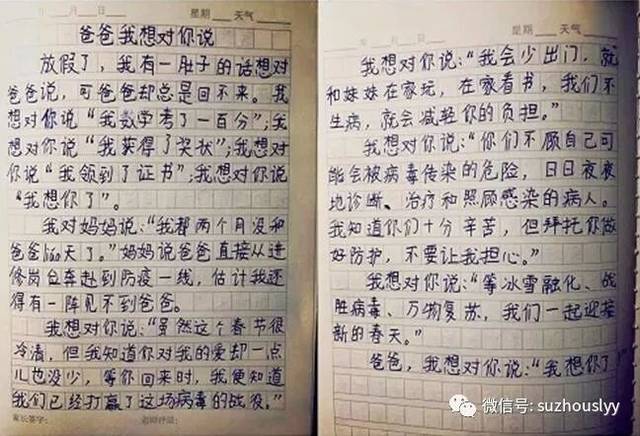 月 日 星期 天气
爸爸我想对你说
放假了，我有一肚子的话想对
爸爸说，可爸爸却总是回不来。我
想对你说“我数学考了一百分”；我
想对你说“我获得了奖状”；我想对
你说“我领到了证书”；我想对你说
“我想你了”。
我对妈妈说：“我 两个月没和
爸爸 天了。”妈妈说爸爸直接从进
修岗位奔赴到防疫一线，估计我还
得有一阵见不到爸爸。
我想对你说：“虽然这个春节很
冷清，但我知道你对我的爱却一点
儿也没少，等你回来时，我便知道
我们已经打赢了这场病毒的战役。”
家长签字：
星期 天气
我想对你说：“我会少出门，就
和妹妹在家玩，在家看书，我们不
生病，就会减轻你的负担。”
我想对你说：“你们不顾自己可
能会被病毒传染的危险，日日夜夜
地诊断、治疗和照顾感染的病人。
我知道你们十分辛苦，但拜托你做
好防护，不要让我担心。”
我想对你说：“等冰雪融化、战
胜病毒、万物复苏，我们一起迎接
新的春天。”
爸爸，我想对你说：“我想你了！
微信号: suzhouslyy